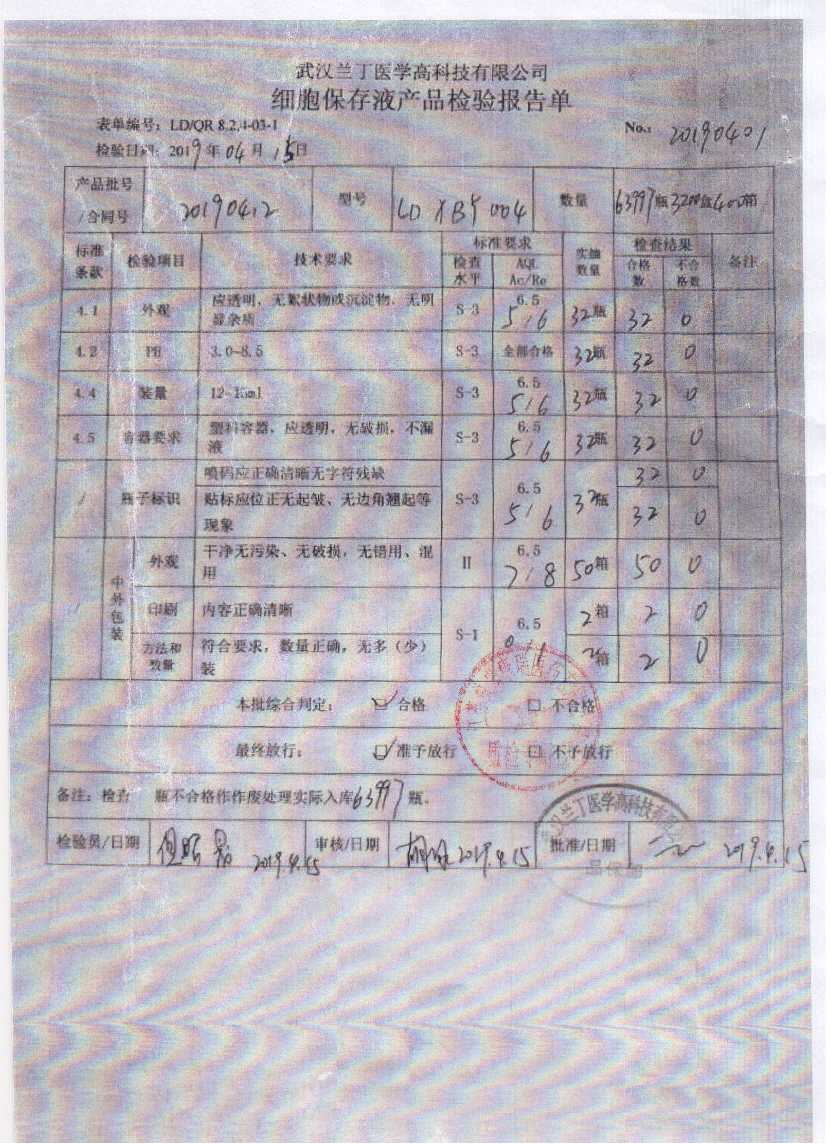 武汉兰丁医学高科技有限公司
细胞保存液产品检验报告单
表单编号：LD/QR 8.2.4-03-1
No.: 20190401
检验日期：2019年04月15日
产品批号/合同号 20190412 型号 LDXBY004 数量 63997瓶3200盒400箱
标准条款 检验项目 技术要求 标准要求 实抽数量 检查结果 备注
检查水平 AQL Ac/Re 合格数 不合格数
4.1 外观 应透明，无絮状物或沉淀物，无明显杂质 S-3 6.5 5/6 32瓶 32 0
4.2 PH 3.0-8.5 S-3 全部合格 32瓶 32 0
4.4 装量 S-3 6.5 5/6 32瓶 32 0
4.5 容器要求 塑料容器，应透明，无破损，不漏液 S-3 6.5 5/6 32瓶 32 0
/ 瓶子标识 喷码应正确清晰无字符残缺 S-3 6.5 5/6 32瓶 32 0
贴标应位正无起皱、无边角翘起等现象 32 0
/ 中外包装 外观 干净无污染、无破损，无错用、混用 II 6.5 7/8 50箱 50 0
印刷 内容正确清晰 S-1 6.5 0/1 2箱 2 0
方法和数量 符合要求，数量正确，无多（少）装 2箱 2 0
本批综合判定： ☑ 合格 □ 不合格
最终放行： ☑ 准予放行 □ 不予放行
备注：检查 瓶不合格作作废处理实际入库63997瓶。
检验员/日期 2019.4.15 审核/日期 2019.4.15 批准/日期 2019.4.15
质检
兰丁医学高科技有
品保部